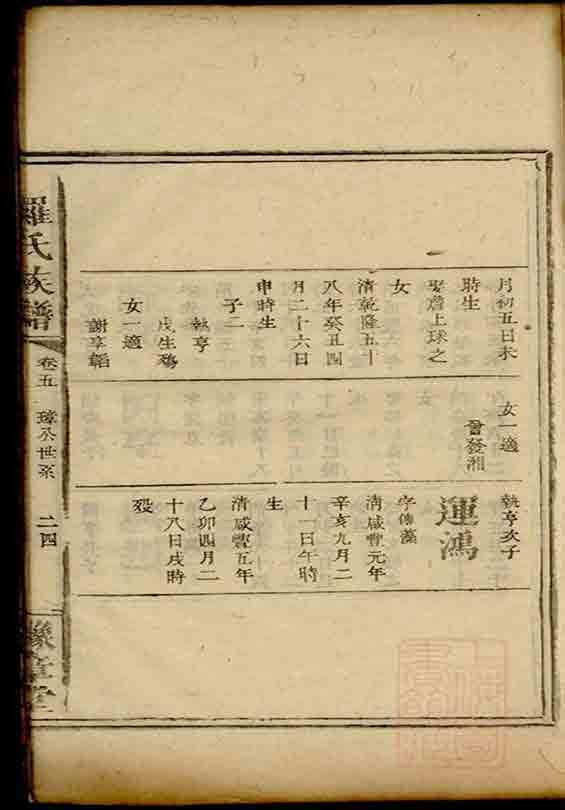 月初五日未
時生
娶詹上球之
女
清乾隆五十
八年癸丑四
月二十六日
申時生
子二
執亨
戊生殤
女一適
謝享韜
女一適
曾發湘
執亨次子
運鴻
字傳藻
清咸豐元年
辛亥九月二
十一日午時
生
清咸豐五年
乙卯四月二
十八日戌時
歿
羅氏族譜
卷五
璋公世系
二四
豫章堂